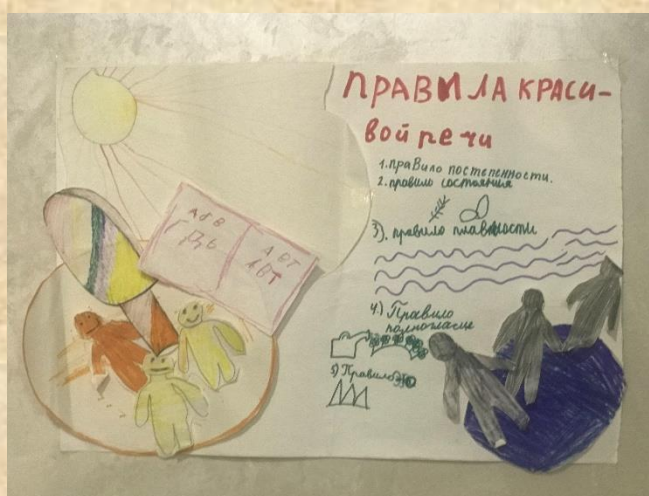 ПРАВИЛА КРАСИ-
вой речи
1. правило постепенности.
2. правило состояния
3). правило плавности
4) Правило
полногласие
5) Правило
А б В
Г Д Ь
А В Т